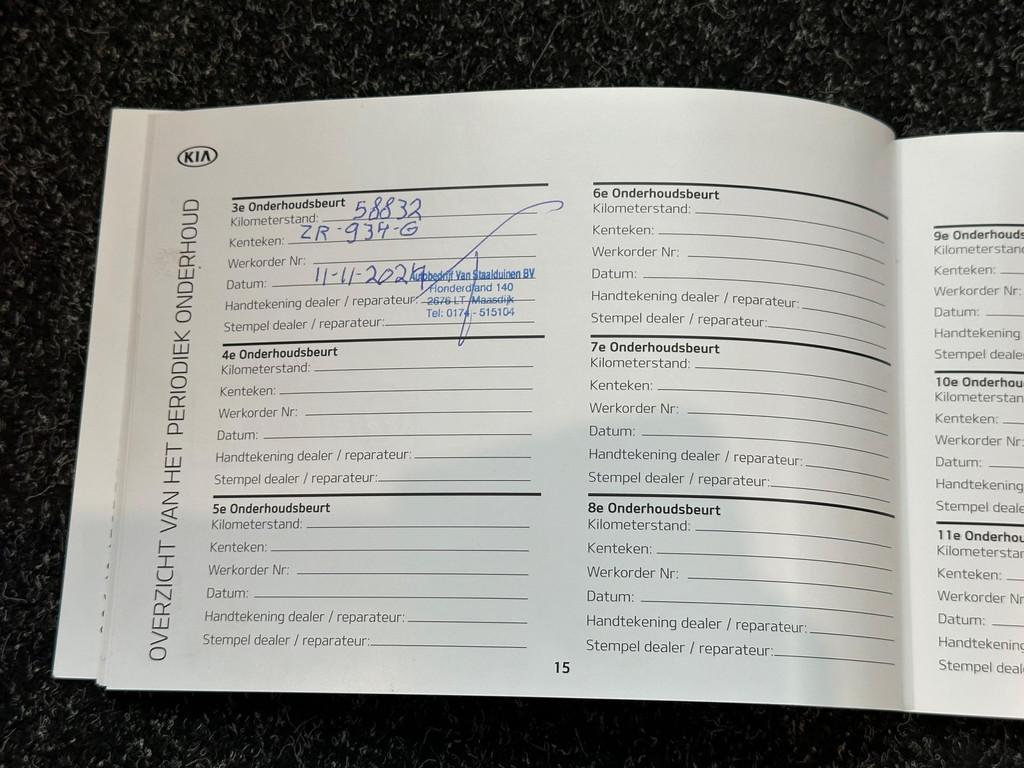 KIA
OVERZICHT VAN HET PERIODIEK ONDERHOUD
3e Onderhoudsbeurt
Kilometerstand: 58832
Kenteken: ZR-934-G
Werkorder Nr:
Datum: 11-11-2024
Handtekening dealer / reparateur:
Stempel dealer / reparateur:
Autobedrijf Van Staalduinen BV
Honderdland 140
2676 LT Maasdijk
Tel: 0174 - 515104
4e Onderhoudsbeurt
Kilometerstand:
Kenteken:
Werkorder Nr:
Datum:
Handtekening dealer / reparateur:
Stempel dealer / reparateur:
5e Onderhoudsbeurt
Kilometerstand:
Kenteken:
Werkorder Nr:
Datum:
Handtekening dealer / reparateur:
Stempel dealer / reparateur:
6e Onderhoudsbeurt
Kilometerstand:
Kenteken:
Werkorder Nr:
Datum:
Handtekening dealer / reparateur:
Stempel dealer / reparateur:
7e Onderhoudsbeurt
Kilometerstand:
Kenteken:
Werkorder Nr:
Datum:
Handtekening dealer / reparateur:
Stempel dealer / reparateur:
8e Onderhoudsbeurt
Kilometerstand:
Kenteken:
Werkorder Nr:
Datum:
Handtekening dealer / reparateur:
Stempel dealer / reparateur:
15
9e Onderhouds
Kilometerstand
Kenteken:
Werkorder Nr:
Datum:
Handtekening
Stempel deale
10e Onderhou
Kilometerstan
Kenteken:
Werkorder Nr:
Datum:
Handtekening
Stempel deale
11e Onderhou
Kilometerstar
Kenteken:
Werkorder Nr
Datum:
Handtekening
Stempel deal